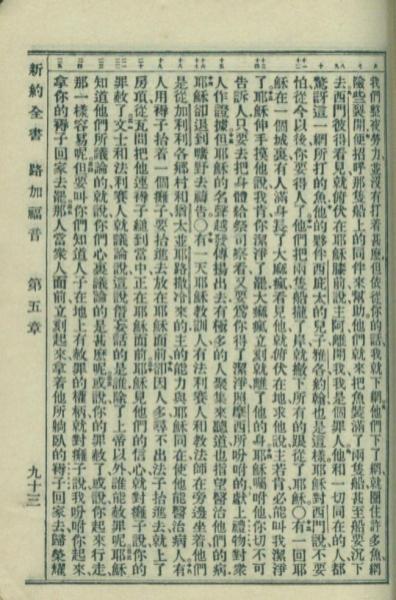 我們整夜勞力、並沒有打着甚麼、但依從你的話、我就下網、他們下了網、就圈住許多魚、網
險些裂開、便招呼那隻船上的同伴來幫助、他們就來把魚裝滿了兩隻船、甚至船要沉下
去、西門彼得看見、就俯伏在耶穌膝前、說、主阿、離開我、我是個罪人、他和一切同在的人、都
驚訝這一網所打的魚、他的夥伴西庇太的兒子雅各約翰、也是這樣、耶穌對西門說、不要
怕、從今以後、你要得人了、他們把兩隻船攏了岸、就撇下所有的、跟從了耶穌、〇有一回耶
穌在一個城裏、有人滿身長了大痲瘋、看見他就俯伏在地求他說、主若肯、必能叫我潔淨
了、耶穌伸手摸他說、我肯、你潔淨了罷、大痲瘋立刻就離了他的身、耶穌囑咐他、你切不可
告訴人、只要去把身體給祭司察看、又要爲你得了潔淨、照摩西所吩咐的、獻上禮物、對衆
人作證據、但耶穌的名聲越發傳揚出去、有極多的人聚集來聽道、也指望醫治他們的病、
耶穌卻退到曠野去禱告、〇有一天耶穌教訓人、有法利賽人和教法師在旁邊坐着、他們
是從加利利各鄉村和猶太並耶路撒冷來的、主的能力與耶穌同在、使他能醫治病人、有
人用褥子抬着一個癱子、要抬進去放在耶穌面前、卻因人多、尋不出法子抬進去、就上了
房頂、從瓦間把他連褥子縋到當中、正在耶穌面前、耶穌見他們的信心、就對癱子說、你的
罪赦了、文士和法利賽人就議論說、這說僭妄話的是誰、除了上帝以外、誰能赦罪呢、耶穌
知道他們所議論的、就說、你們心裏議論的是甚麼呢、或說你的罪赦了、或說你起來行走、
那一樣容易呢、但要叫你們知道人子在地上有赦罪的權柄、就對癱子說、我吩咐你起來、
拿你的褥子回家去罷、那人當衆人面前、立刻起來、拿着他所躺臥的褥子回家去、歸榮耀
新約全書 路加福音 第五章 九十三